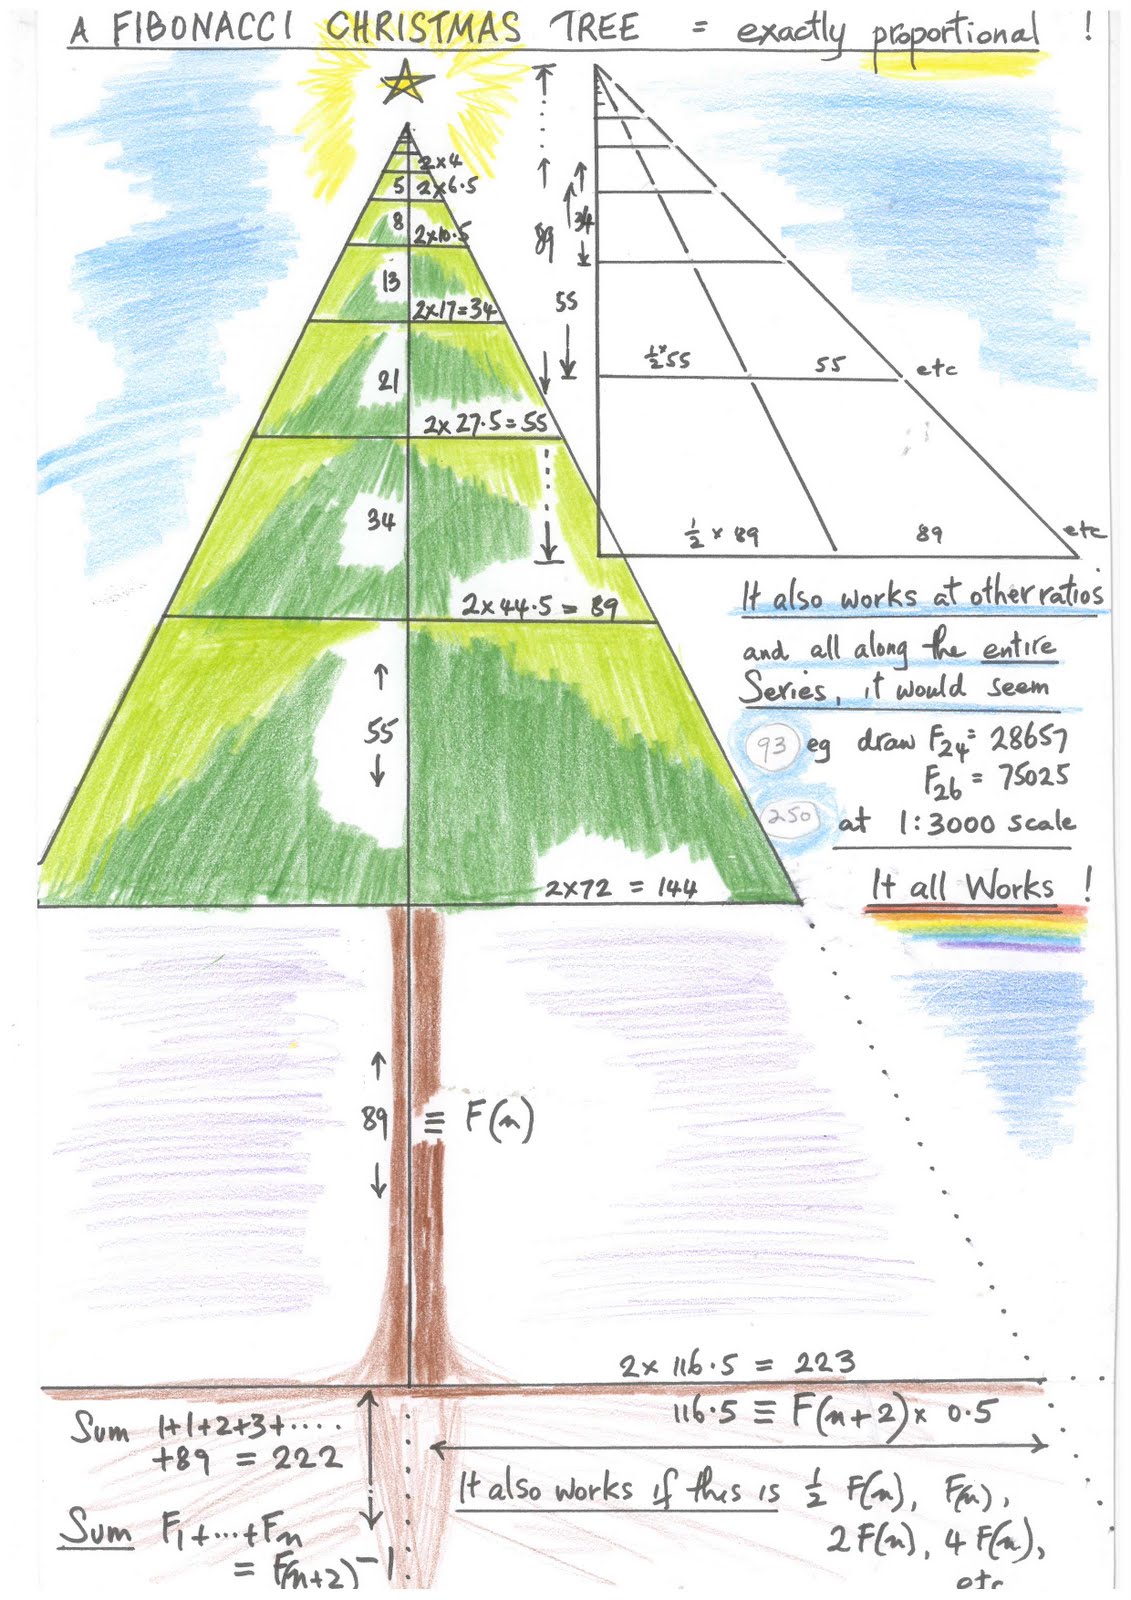 A FIBONACCI CHRISTMAS TREE = exactly proportional !
2x4
5 2x6.5
8 2x10.5
13
2x17=34
21
2x 27.5=55
34
2x44.5 = 89
↑
55
↓
2x72 = 144
89
34
55
½x55 55 etc
½ x 89 89 etc
It also works at other ratios
and all along the entire
Series, it would seem
93 eg draw F24= 28657
F26 = 75025
250 at 1:3000 scale
It all Works !
↑
89 ≡ F(n)
↓
2x 116.5 = 223
116.5 ≡ F(n+2)x 0.5
Sum 1+1+2+3+....
+89 = 222
It also works if this is ½ F(n), F(n),
2F(n), 4F(n),
etc
Sum F1+...+Fn
= F(n+2)-1